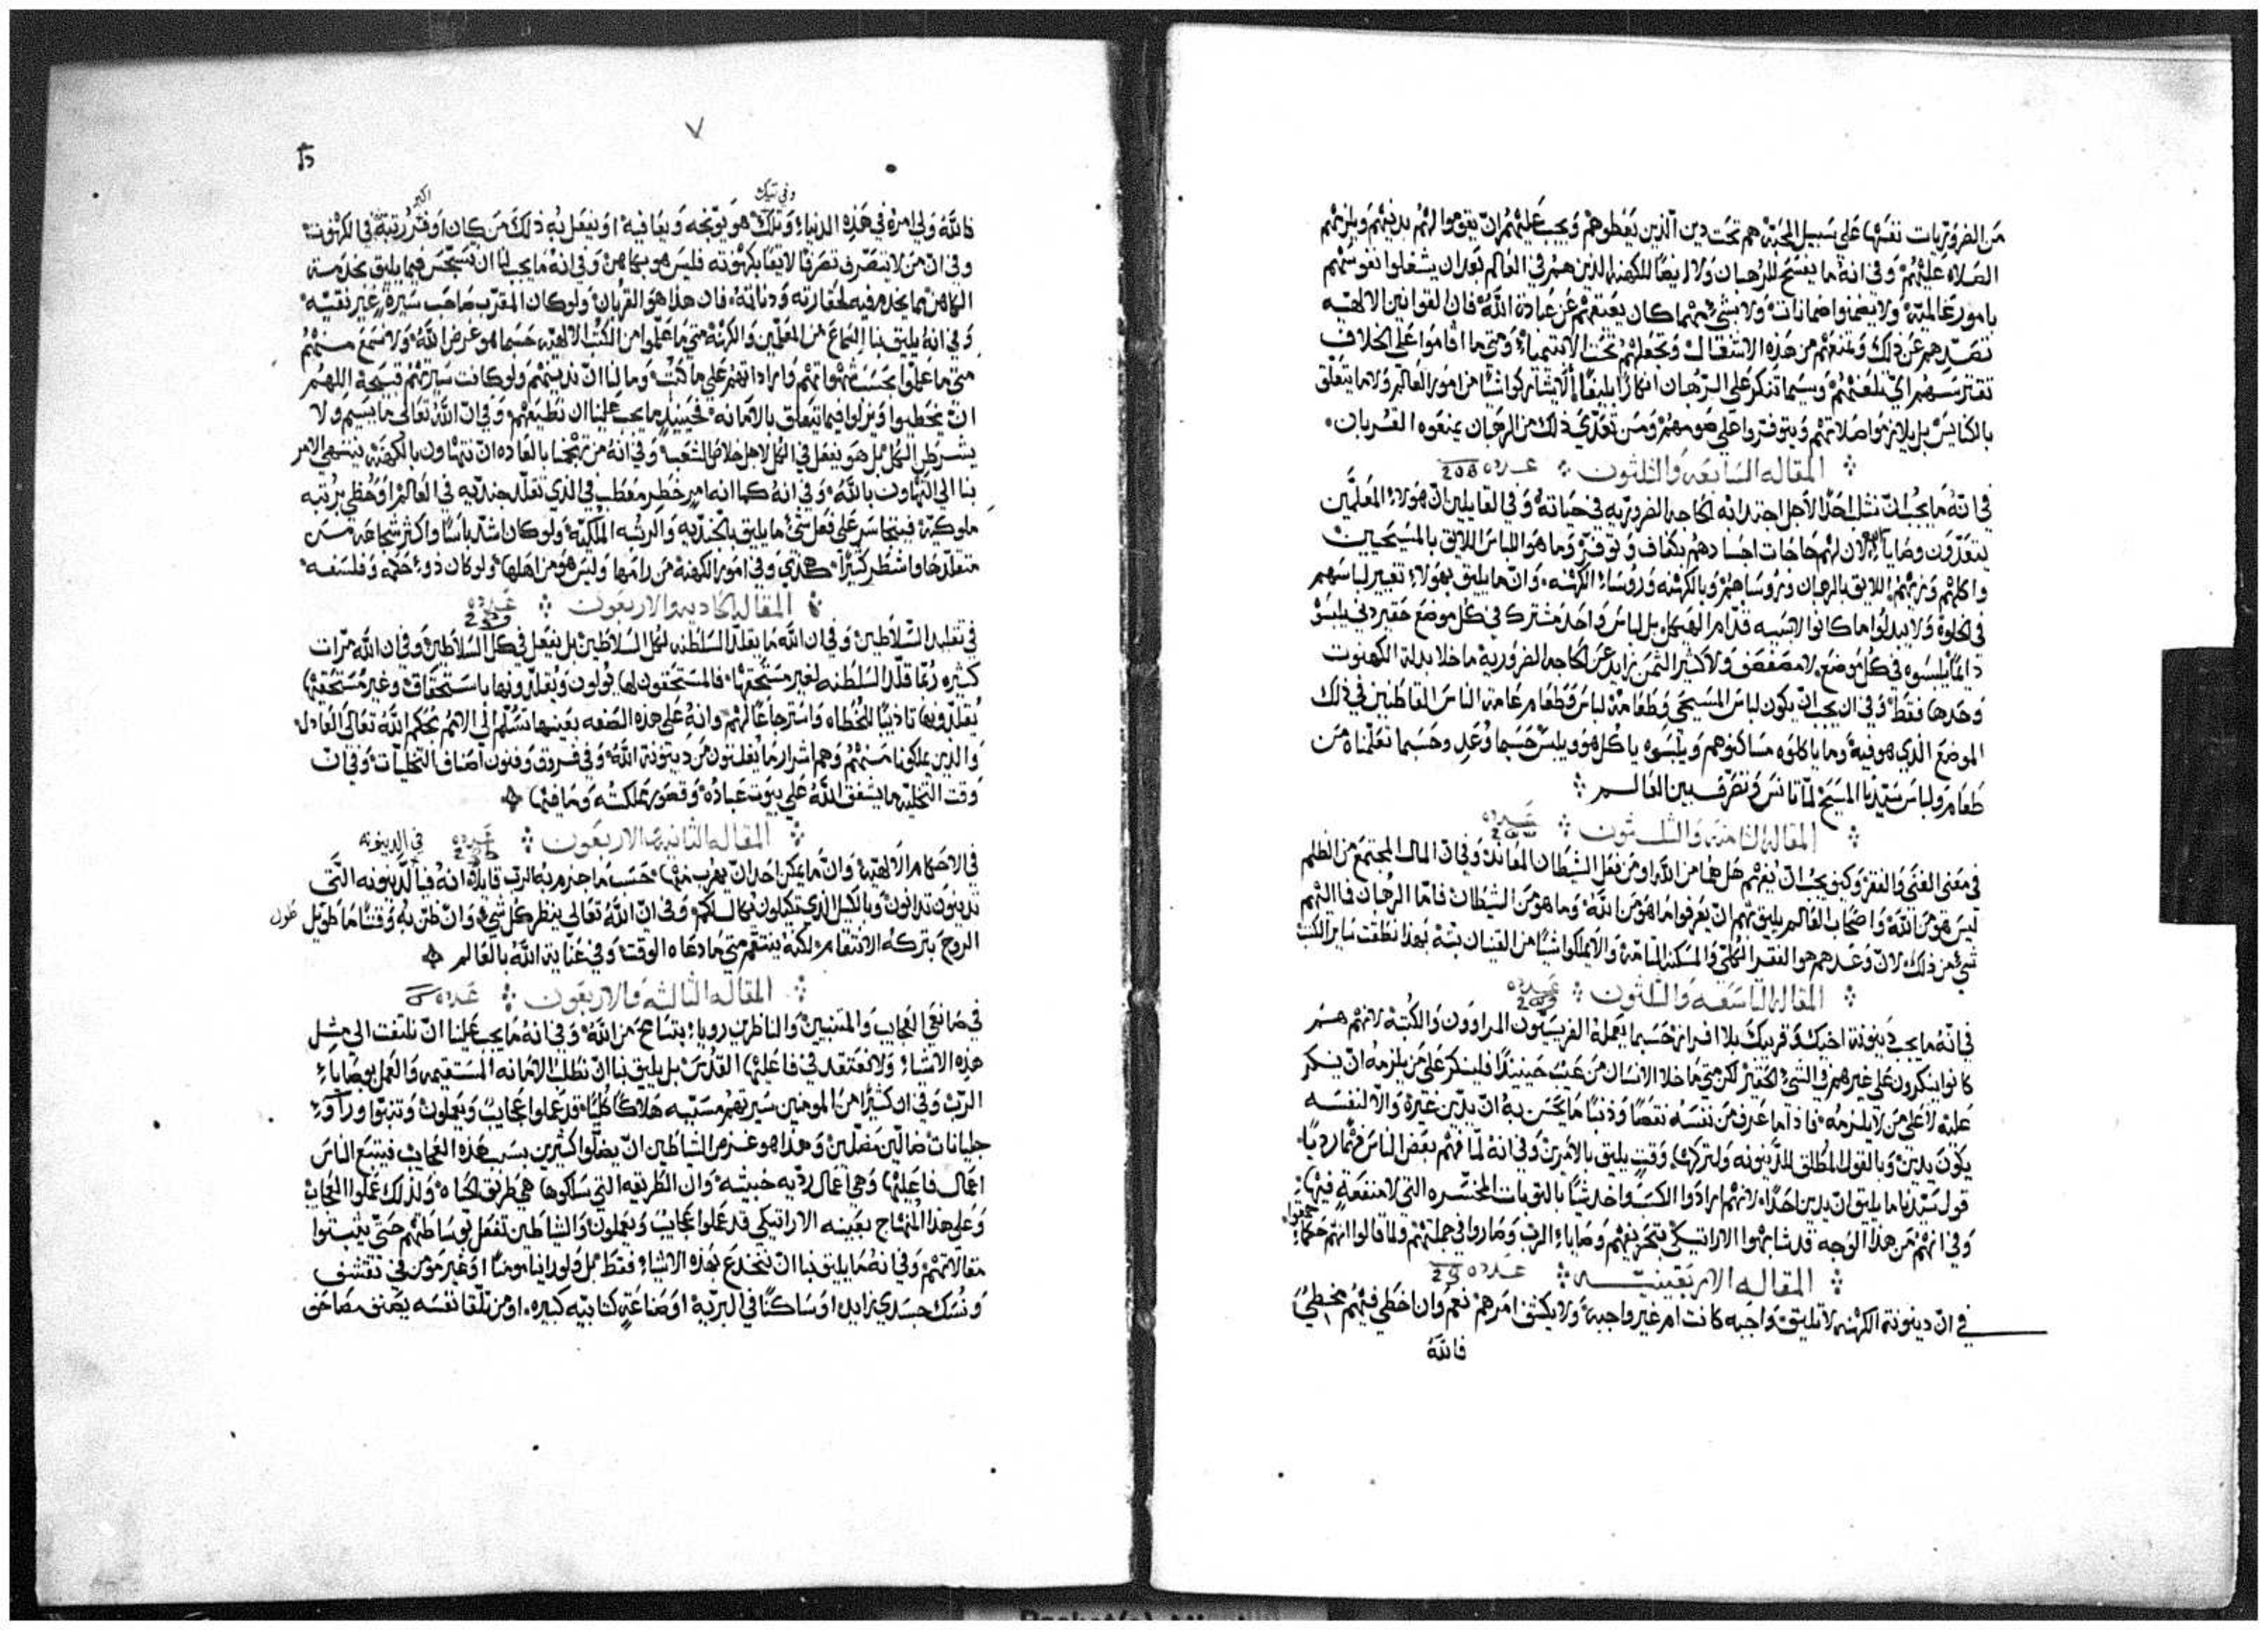 من الضروريات نفسها علي سبيل المحبة هم تحت دين الذين يعطوهم ويجب عليهم ان يقوموا لهم بدينهم ويلزمهم
الصلاه عليهم وفي انه ما يفسح للرهبان ولا ايضًا للكهنه الذين هم في العالم بعد ان يشغلوا نفوسهم
بامور عالمية ولا يضمنوا ضمانات ولا بشيء مهما كان يعيقهم عن عبادة الله فان القوانين الالهيه
تصدهم عن ذلك وتمنعهم من هذه الاشغال وتجعلهم تحت الانتهاء ومتي ما اقاموا علي الخلاف
تقترسهم اي تلعنهم وسيما تنكر علي الرهبان انكارًا بليغًا الا يشاركوا شيًا من امور العالم ولا ما يتعلق
بالكنايس بل يلازموا صلاتهم ويتوفروا علي صومهم ومن تعدي ذلك من الرهبان يمنعوه القربان
المقاله السابعه والثلثون عدده 208
في انه ما يجب ان نثلب احدًا لاجل اجتدائه الحاجه الضروريه في حياته وفي القايلين ان هولاء المعلمين
يتعدون وصايا الله لان لهم حاجات اجسادهم بكفاف وتوفر وما هو اللباس اللايق بالمسيحيين
واكلهم وزيهم اللايق بالرهبان وروساهم وبالكهنه وروساء الكهنه وان ما يليق بهولاء تغيير لباسهم
في الخلوة ولا يبدلوا ما كانوا لابسيه قدام الهيكل بل لباس واحد مشترك في كل موضع حقير دني يلبسو
دايمًا يلبسوه في كل موضع لا مصفف ولا كثير الثمن زايد عن الحاجه الضرورية ما خلا بدلة الكهنوت
وحدها فقط وفي ان يجب ان يكون لباس المسيحي وطعامه لباس وطعام عامة الناس القاطنين في ذلك
الموضع الذي هو فيه وما ياكلوه مساكنوهم ويلبسوه ياكل هو ويلبس حسبما وعد وحسبما تعلمناه من
طعام ولباس سيدنا المسيح لما تانس وتصرف بين العالم
المقاله الثامنه والثلثون عدده
في معنى الغنى والفقر وكيف يجب ان يفهم هل هما من الله او من فعل الشيطان المعاند وفي ان المال المجتمع من الظلم
ليس هو من الله واصحاب العالم يليق بهم ان يعرفوا ما هو من الله وما هو من الشيطان فاما الرهبان فما الزمهم
شي من ذلك لان وعدهم هو الفقر الكلي والمسكنه التامه والا يملكوا شيًا من القنيان بته بهذا نطقت ساير الكتب
المقاله التاسعه والثلثون عدده
في انه ما يجب دينونة اخيك وقريبك بلا افراز حسبما يعمله الفريسيون المراوون والكتبة لانهم هم
كانوا ينكرون علي غيرهم في الشي الحقير لكن متي ما خلا الانسان من عيب حينيذ فلينكر علي من يلزمه ان ينكر
عليه لا علي من لا يلزمه فاذا ما عرف من نفسه نقصًا وذنبًا ما يحسن به ان يدين غيره والا لنفسه
يكون يدين وبالقول المطلق للدينونه ولتركها وقت يليق بالامرين وفي انه لما فهم بعض الناس فهمًا رديًا
قول سيدنا ما يليق ان يدين احدًا لانهم ارادوا الكسب واخذ شيًا بالتوبات المختشره التي لا منفعة فيها
وفي انهم من هذا الوجه قد شابهوا الاراتيكي بتحريفهم وصاياء الرب وصاروا في جملتهم ولما قالوا انهم حكماء حمقوا
المقاله الاربعينيه عدده
في ان دينونة الكهنه لا تليق واجبه كانت ام غير واجبه ولا يكشف امرهم نعم وان اخطي فيهم مخطي
فالله
٧
فالله ولي امره في هذه الدنيا وفي تيك وتلك هو يوبخه ويعافيه او يفعل به ذلك من كان اوفر اكبر رتبة في الكهنوت
وفي ان من لا يتصرف تصرفًا لايقًا بكهنوته فليس هو بكاهن وفي انه ما يجب لنا ان نتبحس فيما يليق بخدمة
الكاهن مما يخدم فيه لحقارته ودناته فان هذا هو القربان ولو كان المقرب صاحب سيرة غير نقيه
وفي انه يليق بنا السماع من المعلمين والكهنة متي ما علموا من الكتب الالهيه حسبما هو غرض الله ولا نسمع منهم
متي ما علموا بحسب شهواتهم واراداتهم علي ما كتب وما لنا ان ندينهم ولو كانت سيرتهم قبيحة اللهم
ان يخطيوا ويزلوا فيما يتعلق بالامانه فحينيذ ما يجب علينا ان نطيعهم وفي ان الله تعالى ما يسيم ولا
يشرطن الكل بل هو يفعل في الكل لاجل خلاص الشعب وفي انه من تهجمنا بالعاده ان نتهاون بالكهنة ينتهي الامر
بنا الي التهاون بالله وفي انه كما انه امر خطر معطب في الذي تقلد جنديه في العالم او حظي برتبه
ملوكية فيتجاسر علي فعل شي ما يليق بالجنديه والرتبه الملكية ولو كان اشد باسًا واكثر شجاعه من
متقلدها واشطر كثيرًا هكذي وفي امور الكهنة من رامها وليس هو من اهلها ولو كان ذو حكمه وفلسفه
المقاله الحاديه والاربعون عدده
في تقليد السلاطين وفي ان الله ما يقلد السلطنه لكل السلاطين بل يفعل في كل السلاطين وفي ان الله مرات
كثيره ربما قلد السلطنه لغير مستحقها فالمستحقون لها يولون ويقلدونها باستحقاق وغير مستحقها
يقلدونها تاديبًا للخطاه واسترجاعًا لهم وانه علي هذه الصفه بعينها تسلم في الامم بحكم الله تعالى العادل
والذين يملكونا منهم وهم اشرار ما يفلتون من دينونة الله وفي فروق وفنون اصناف التخليات وفي ان
وقت التخليه ما يشفق الله علي بيوت عباده وقصور مملكته وما فيها
المقاله الثانيه والاربعون عدده في الدينونه
في الاحكام الالهية وان ما يمكن احد ان يهرب منها حسب ما جزم به الرب قايلا انه فبالدينونه التي
تدينون تدانون وبالكيل الذي تكيلون يكال لكم وفي ان الله تعالى ينظر كل شي وان ظن به وقتًا ما طويل طول
الروح بتركه الانتقام لكنه ينتقم متي ما دعاه الوقت وفي عناية الله بالعالم
المقاله الثالثه والاربعون عدده
في صانعي العجايب والمتنبيين والناظرين رويا بتسامح من الله وفي انه ما يجب علينا ان نلتفت الى مثل
هذه الاشياء ولا نعتقد في فاعليها القدس بل يليق بنا ان نطلب الامانه المستقيمه والعمل بوصاياء
الرب وفي ان كثيرًا من المومنين سيرتهم مسببه هلاكًا كليًا قد عملوا عجايب ويعملون وتنبوا وراوء
جليانات ضالين مضلين وهذا هو غرض الشياطين ان يضلوا كثيرين بسبب هذه العجايب فيتبع الناس
اعمال فاعليها وهي اعمال رديه خبيثه وان الطريقه التي سلكوها هي طريق الحياه ولذلك عملوا العجايب
وعلي هذا المنهاج بعينه الاراتيكي قد عملوا عجايب ويعملون والشياطين تفعل بوساطتهم حتى يثبتوا
مقالاتهم وفي انه ما يليق بنا ان ننخدع بهذه الاشياء فقط بل ولو راينا مومنًا او غير مومن في تقشف
ونسك جسدي زايد او ساكنًا في البرية او صناعة كتابيه كبيره او من تلقا نفسه يصنف مصاحف